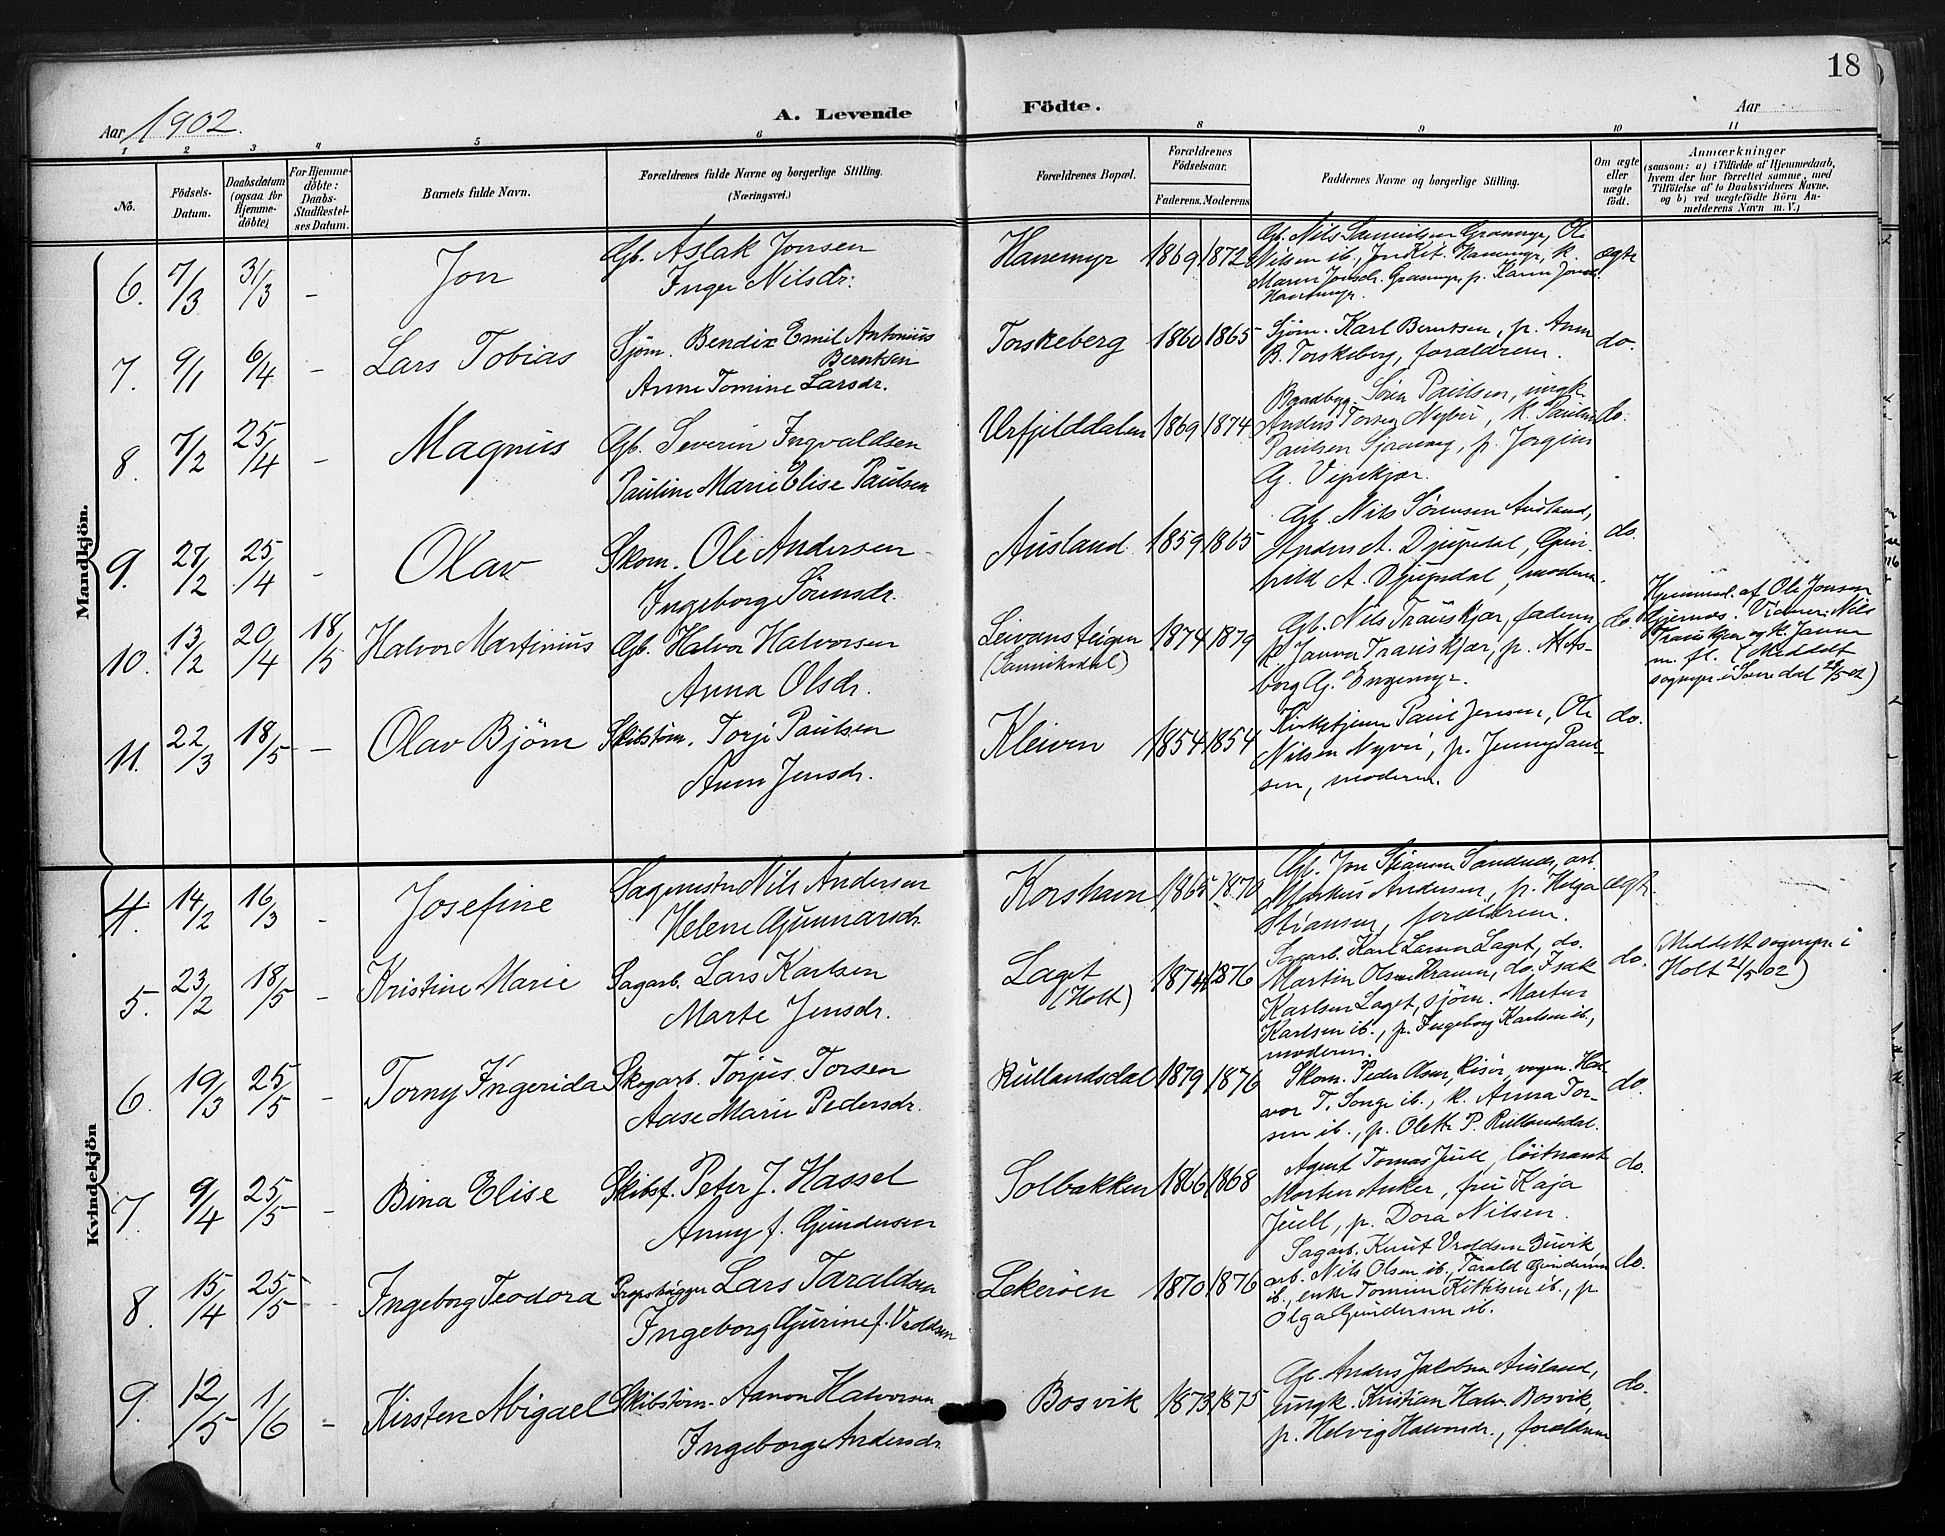 18
Aar 1902.
A. Levende Födte.
Aar
1 2 3 4 5 6 8 9 10 11
No.
Födsels-Datum.
Daabsdatum (ogsaa for Hjemmedöbte)
For Hjemmedöbte: Daabs-Stadfæstelses Datum.
Barnets fulde Navn.
Forældrenes fulde Navne og borgerlige Stilling. (Næringsvei.)
Forældrenes Bopæl.
Forældrenes Födselsaar.
Faderens. Moderens
Faddernes Navne og borgerlige Stilling.
Om ægte eller uægte födt.
Anmærkninger
(saasom: a) i Tilfælde af Hjemmedaab,
hvem der har forrettet samme, med
Tilföielse af to Daabsvidners Navne.
og b) ved uægtefödte Börn An-
melderens Navn m. V.)
Mandkjön.
6. 7/3 31/3 - Jon
Gb. Aslak Jonsen
Inger Nilsdr.
Hanemyr 1869 1872
Gb. Nils Samuelsen Grasmyr, Ole
Nilsen ib., Jon Kit. Hanemyr, k.
Maren Jonsdr. Grasmyr, p. Karen Jons.
Hanemyr.
ægte
7. 9/1 6/4 - Lars Tobias
Sjøm. Bendix Emil Antonius
Berntsen
Anne Tomine Larsdr.
Torskeberg 1860 1865
Sjøm. Karl Berntsen, p. Anne
B. Torskeberg, forældrene.
do.
8. 7/2 25/4 - Magnus
Gb. Severin Ingvaldsen
Pauline Marie Elise Paulsen
Urfjelddalen 1869 1874
Baadbyg. Søren Paulsen, ungk.
Anders Torsen Nybu, k. Pauline
Paulsen, p. Jorgine
G.
do.
9. 27/2 25/4 - Olav
Skom. Ole Andersen
Ingeborg Sörensdr.
Ausland 1859 1865
Gb. Nils Sørensen Ausland,
Anders A. Djupedal, Gun-
hild A. Djupedal, moderen.
do.
10. 13/2 20/4 18/5 Halvor Martinius
Gb. Halvor Halvorsen
Anna Olsdr.
Leivansteigen
(Sannikedal)
1874 1879
Gb. Nils Trauskjær, faderen,
k. Janna Trauskjær, p. Mets-
borg G. Engemyr.
do.
Hjemmed. af Ole Jonsen
Gjernes. Vidner: Nils
Trauskjær og k. Janna
m. fl. (Meddelt
sognepr. i Sannedal 28/5 02)
11. 22/3 18/5 - Olav Bjöm
Skibstöm. Torje Paulsen
Anne Jensdr.
Kleiven 1854 1854
Kirketjener Paul Jensen, Ole
Nilsen Nyvei, p. Jenny Paul-
sen, moderen.
do.
Kvindekjön
4. 14/2 16/3 - Josefine
Sagmester Nils Andersen
Helene Gunnarsdr.
Korshavn 1865 1870
Gb. Jon Stiansen Sandnes, arb.
Markus Andersen, p. Helga
Stiansen, forældrene.
ægte.
5. 23/2 18/5 - Kristine Marie
Sagarb. Lars Karlsen
Marte Jensdr.
Laget
(Holt)
1874 1876
Sagarb. Karl Larsen Laget, do.
Martin Olsen Kranen, do. Isak
Karlsen Laget, sjøm. Martin
Karlsen ib., p. Ingeborg Karlsen ib.,
moderen.
do.
(Meddelt sognepr. i
Holt 21/5 02)
6. 19/3 25/5 - Torny Ingerida
Skogarb. Torjus Torsen
Aase Marie Pedersdr.
Rullandsdal 1879 1876
Skom. Peder Olsen, Risör, vogn. Hal-
vor T. Songe ib., k. Anna Tor-
sen ib., p. Olette P. Rullandsdal.
do.
7. 9/4 25/5 - Bina Elise
Skibsf. Peter J. Hassel
Anny f. Gundersen
Solbakken 1866 1868
Agent Tomas Juell, löitnant
Morten Anker, fru Kaja
Juell, p. Dora Nilsen.
do.
8. 15/4 25/5 - Ingeborg Teodora
Propskugger Lars Taraldsen
Ingeborg Gurine f. Vroldsen
Lekeröen 1870 1876
Sagarb. Knut Vroldsen Buvik
arb. Nils Olsen ib., Tarald Gundersen
ib., enke Tomine Kittilsen ib., p.
Olga Gundersen ib.
do.
9. 12/5 1/6 - Kirsten Abigael
Skibstöm. Aanon Halvorsen
Ingeborg Andersdr.
Bosvik 1873 1875
Gb. Anders Jakobsen Ausland,
ungk. Kristian Halv. Bosvik,
p. Helvig Halvorsdr., forældrene
do.